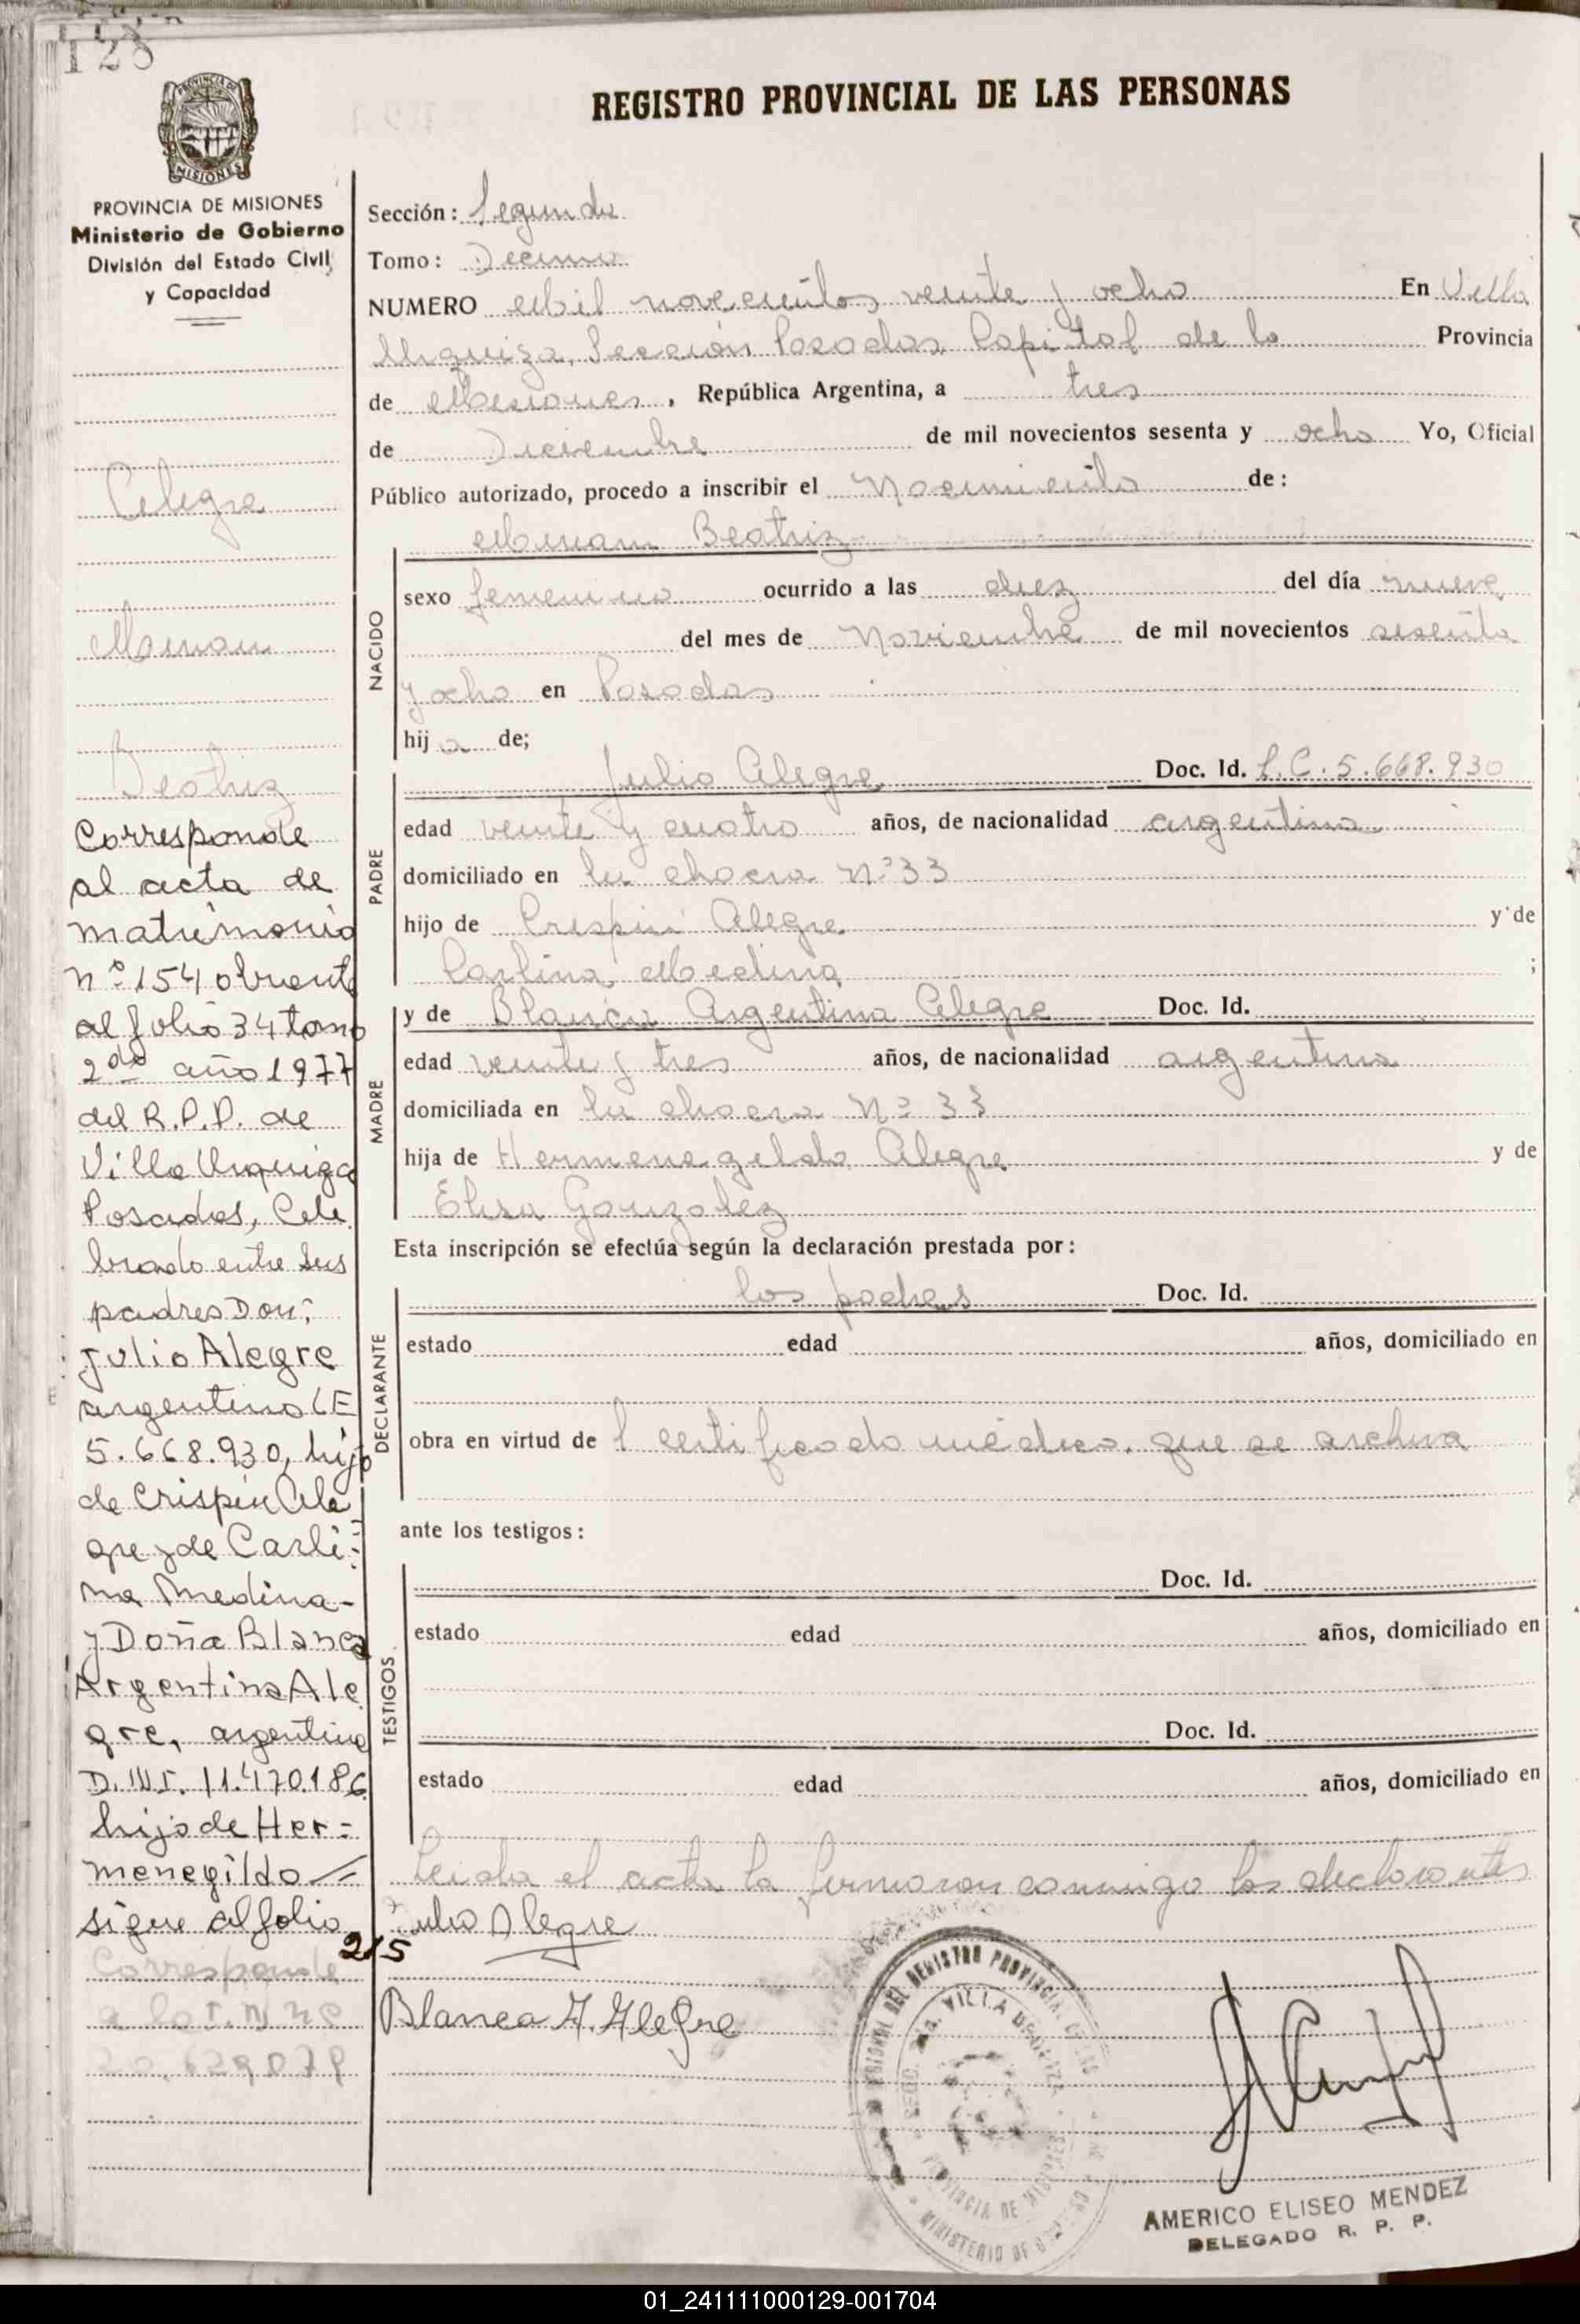 128
PROVINCIA DE MISIONES
Ministerio de Gobierno
División del Estado Civil
y Capacidad
Alegre
Mirian
Beatriz
Corresponde
al acta de
matrimonio
nº 154 obrante
al folio 34 tomo
2do año 1977
del R.P.P. de
Villa Urquiza
Posadas, Cele
brado entre sus
padres Don:
Julio Alegre
argentino LE
5.668.930, hijo
de Crispín Ale
gre y de Carli=
na Medina-
y Doña Blanca
Argentina Ale
gre, argentina
D.N.I. 11.470.186
hija de Her=
menegildo
sigue al folio
215
Corresponde
20.629.079
REGISTRO PROVINCIAL DE LAS PERSONAS
Sección: Segunda
Tomo: Decimo
NUMERO Mil novecientos veinte y ocho En Villa
Urquiza, Sección Posadas Capital de la Provincia
de Misiones, República Argentina, a tres
de Diciembre de mil novecientos sesenta y ocho Yo, Oficial
Público autorizado, procedo a inscribir el Nacimiento de:
Mirian Beatriz
NACIDO
sexo femenino ocurrido a las diez del día nueve
del mes de Noviembre de mil novecientos sesenta
y ocho en Posadas
hija de;
PADRE
Julio Alegre Doc. Id. L.C. 5.668.930
edad veinte y cuatro años, de nacionalidad argentina
domiciliado en la chacra Nº 33
hijo de Crispin Alegre y de
Carlina Medina ;
MADRE
y de Blanca Argentina Alegre Doc. Id.
edad veinte y tres años, de nacionalidad argentina
domiciliada en la chacra Nº 33
hija de Hermenegildo Alegre y de
Elisa Gonzalez
Esta inscripción se efectúa según la declaración prestada por:
DECLARANTE
los padres Doc. Id.
estado edad años, domiciliado en
obra en virtud de l certificado médico que se archiva
ante los testigos:
TESTIGOS
Doc. Id.
estado edad años, domiciliado en
Doc. Id.
estado edad años, domiciliado en
Leida el acta la firmaron conmigo los declarantes
Julio Alegre
Blanca A. Alegre
DEL REGISTRO PROVINCIAL
VILLA URQUIZA
PROVINCIA DE MISIONES
MINISTERIO DE GOBIERNO
AMERICO ELISEO MENDEZ
DELEGADO R. P. P.
01_241111000129-001704